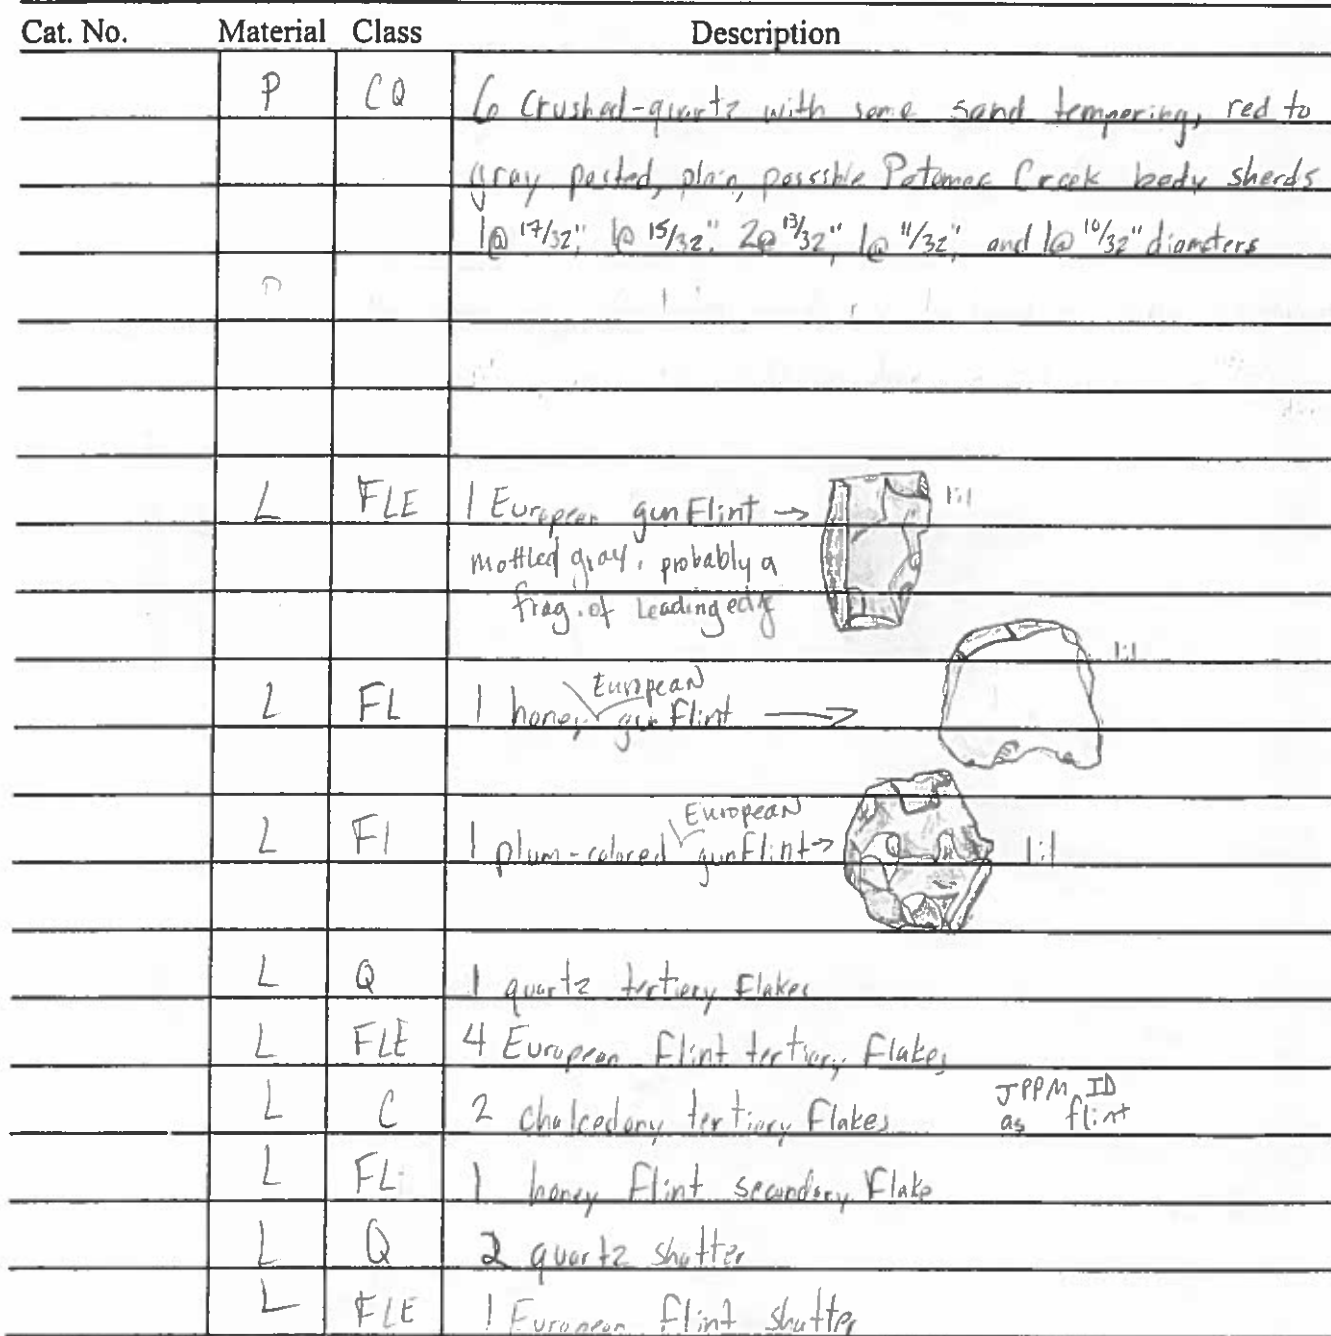 Cat. No. Material Class Description
P CQ 6 Crushed-quartz with some sand tempering, red to
gray pasted, plain, possible Potomac Creek body sherds
1@ 17/32", 1@ 15/32", 2@ 13/32", 1@ 11/32", and 1@ 10/32" diameters
L FLE 1 European gunflint → 1:1
mottled gray, probably a
frag. of leading edge
1:1
L FL 1 honey European gunflint →
L Fl 1 plum-colored European gunflint → 1:1
L Q 1 quartz tertiary flakes
L FLE 4 European flint tertiary flakes
L C 2 chalcedony tertiary flakes JPPM ID
as flint
L FL 1 honey flint secondary flake
L Q 2 quartz shatter
L FLE 1 European flint shatter